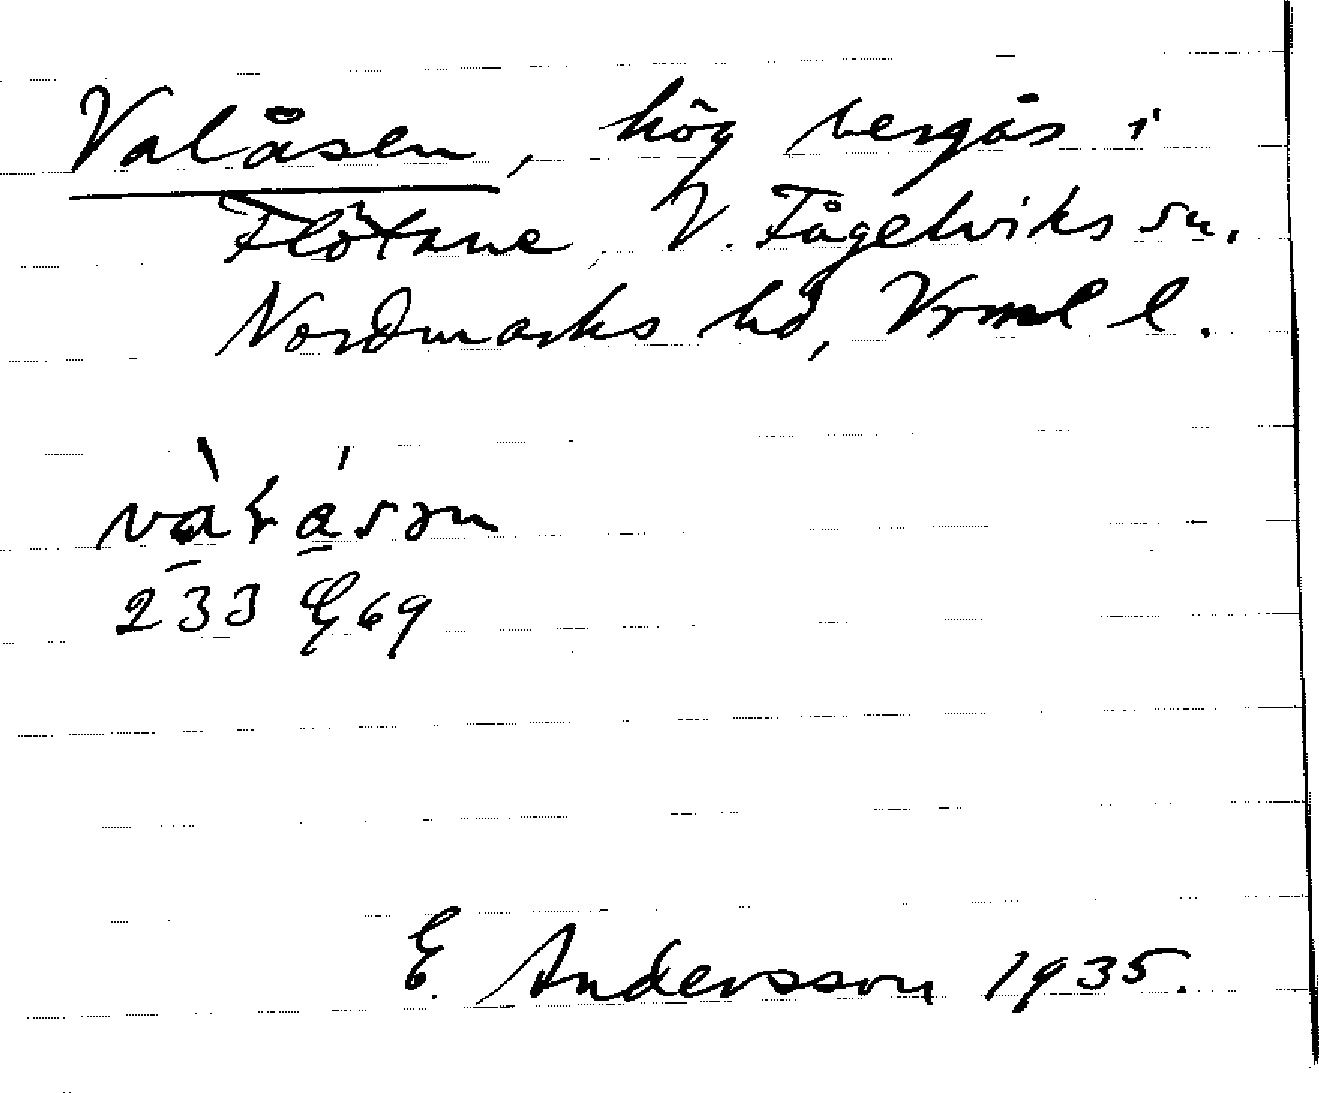 Valåsen, hög bergås i
Flötane, V. Fågelviks sn.
Nordmarks hd, Vrml l.
233 E69
E. Andersson 1935.